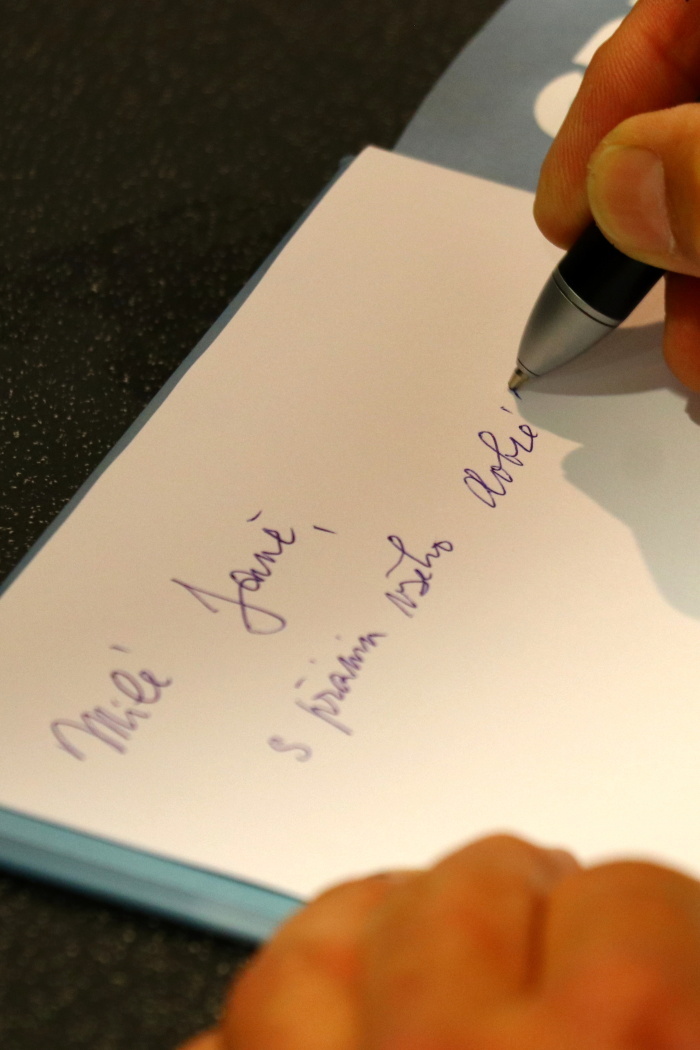 Milé Janě,
s přáním všeho dobré